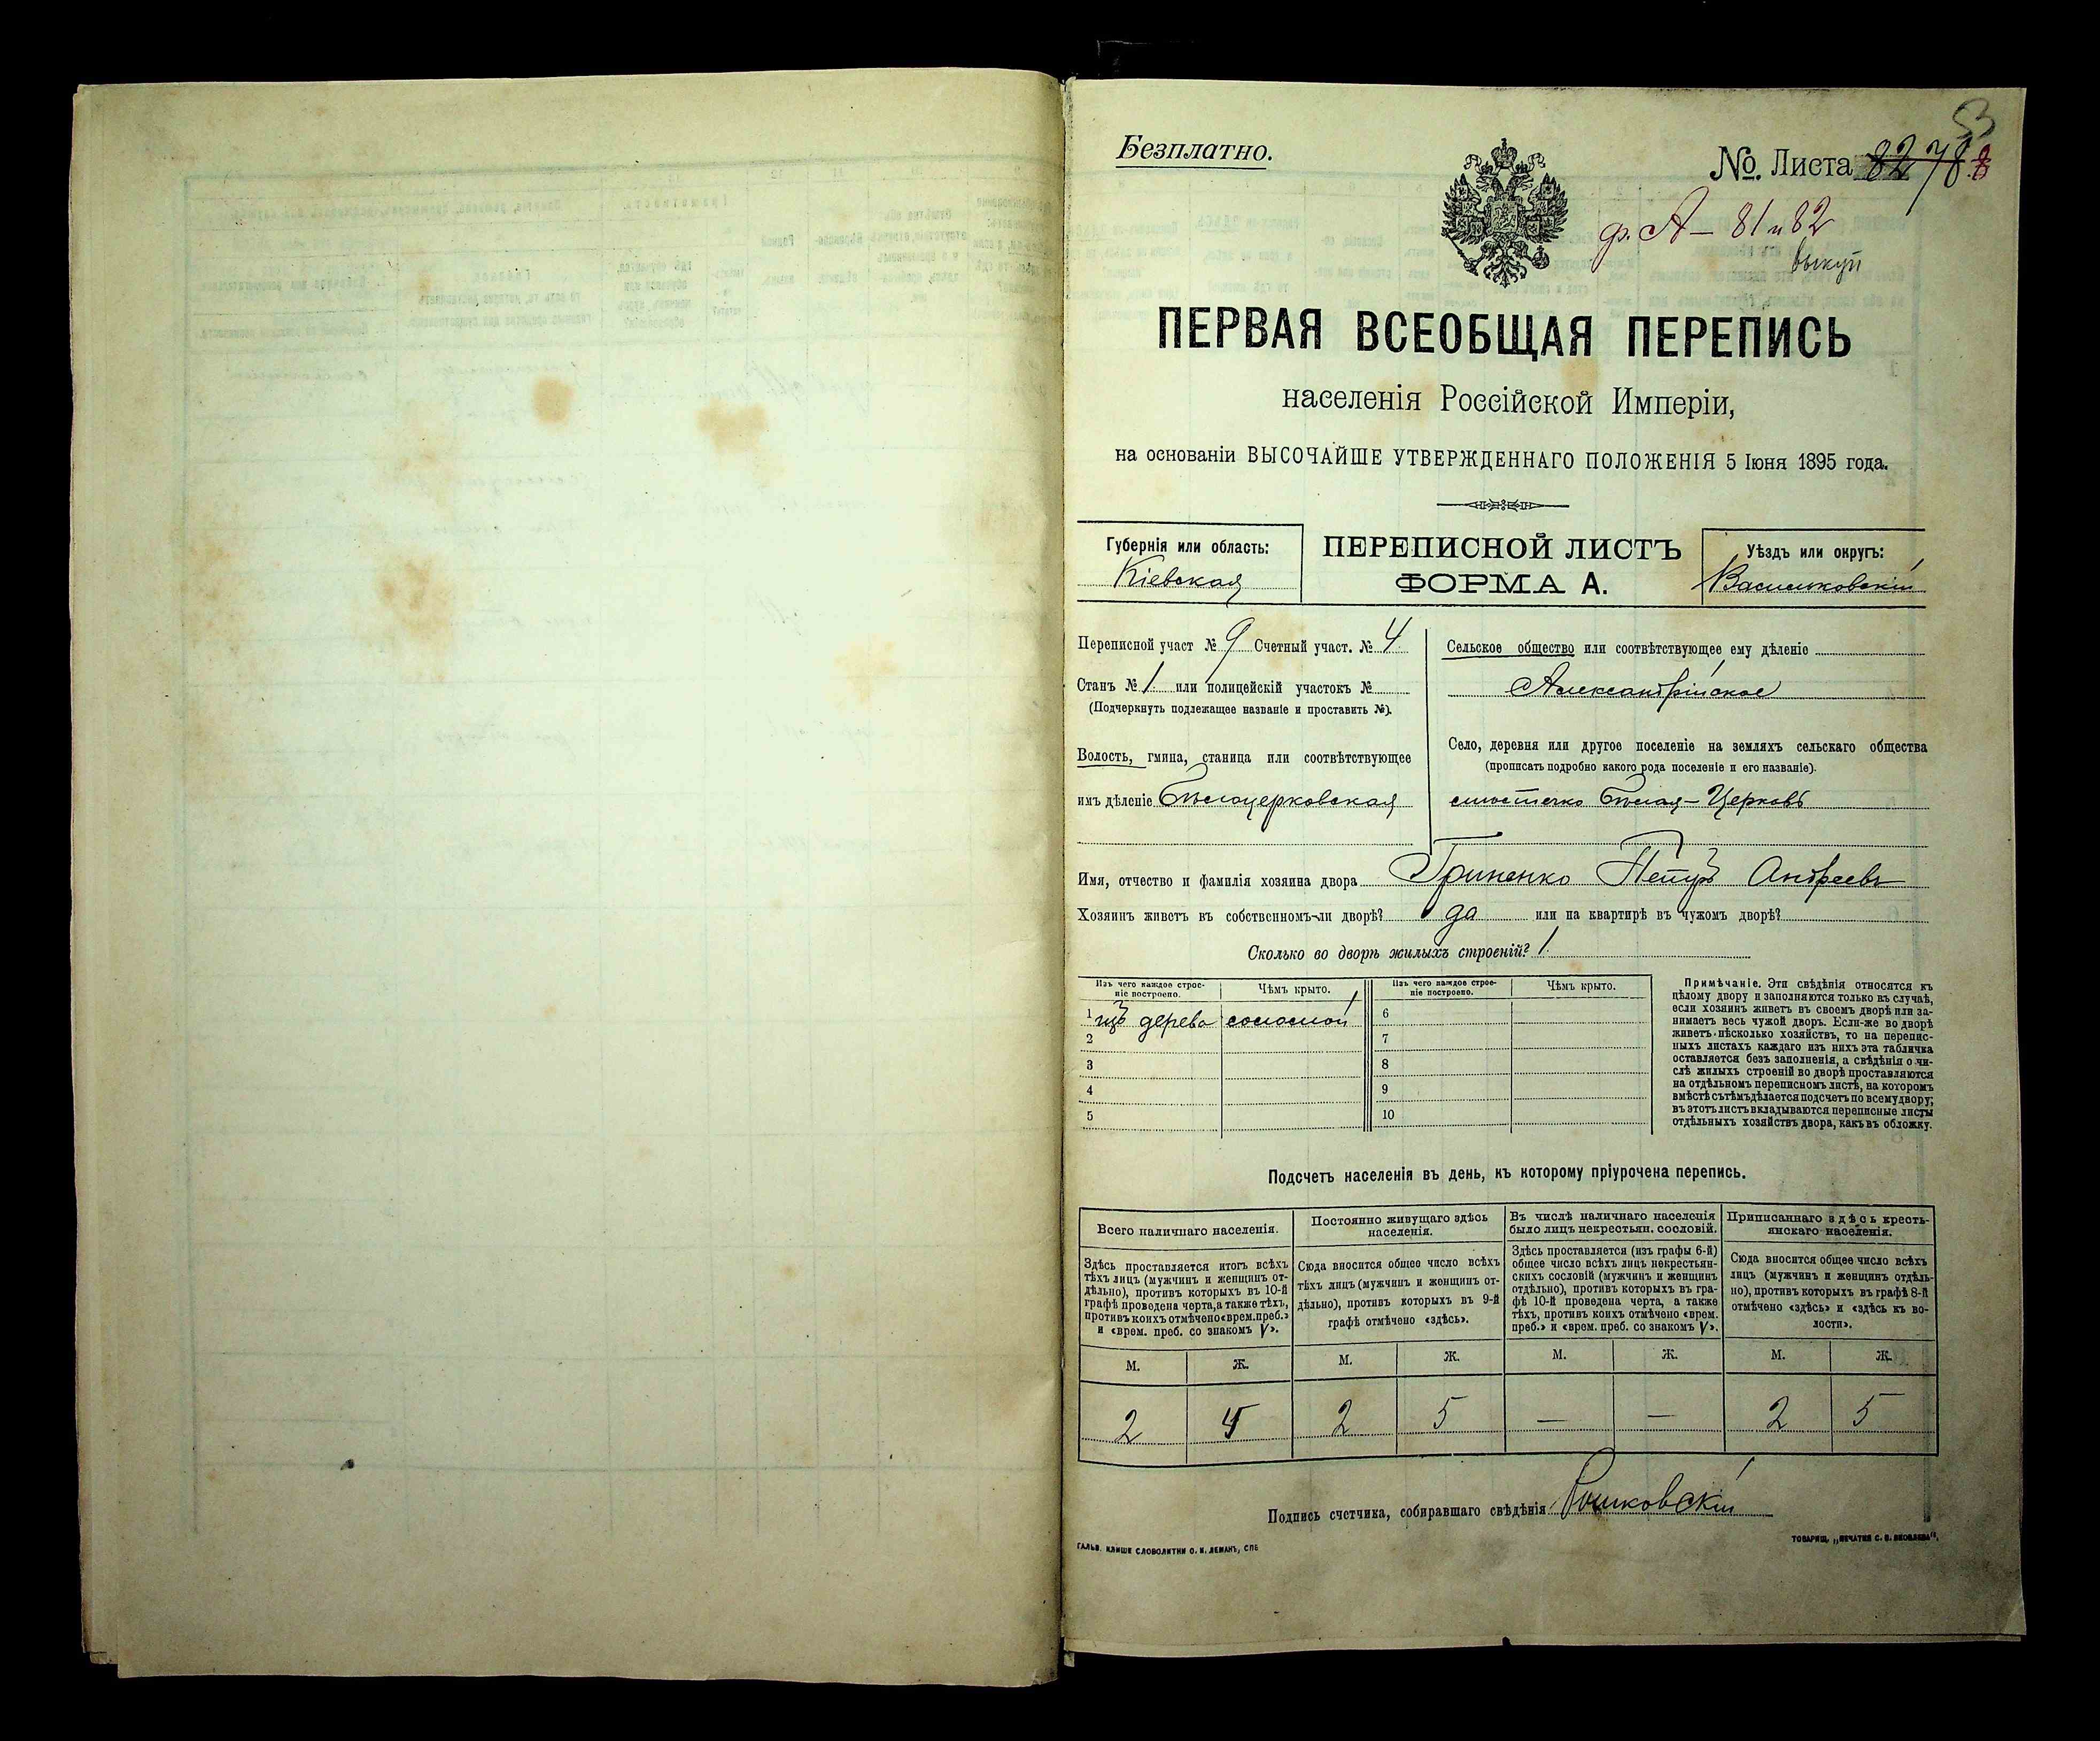 Безплатно.
№. Листа 82 78 8
ф. А — 81 и 82
выкуп
ПЕРВАЯ ВСЕОБЩАЯ ПЕРЕПИСЬ
населенія Россійской Имперіи,
на основаніи ВЫСОЧАЙШЕ УТВЕРЖДЕННАГО ПОЛОЖЕНІЯ 5 Іюня 1895 года.
Губернія или область:
Кіевская
ПЕРЕПИСНОЙ ЛИСТЪ
ФОРМА А.
Уѣздъ или округъ:
Васильковскій
Переписной участ № 9 Счетный участ. № 4
Станъ № 1 или полицейскій участокъ №
(Подчеркнуть подлежащее названіе и проставить №).
Волость, гмина, станица или соотвѣтствующее
имъ дѣленіе Бѣлоцерковская
Сельское общество или соотвѣтствующее ему дѣленіе
Александрійское
Село, деревня или другое поселеніе на земляхъ сельскаго общества
(прописать подробно какого рода поселеніе и его названіе).
мѣстечко Бѣлая-Церковь
Имя, отчество и фамилія хозяина двора Гриненко Петръ Андреевъ
Хозяинъ живетъ въ собственномъ-ли дворѣ? да или на квартирѣ въ чужомъ дворѣ?
Сколько во дворѣ жилыхъ строеній? 1.
Изъ чего каждое строе-
ніе построено.
Чѣмъ крыто.
Изъ чего каждое строе-
ніе построено.
Чѣмъ крыто.
1 изъ дерева соломой 6
2 7
3 8
4 9
5 10
Примѣчаніе. Эти свѣдѣнія относятся къ
цѣлому двору и заполняются только въ случаѣ,
если хозяинъ живетъ въ своемъ дворѣ или за-
нимаетъ весь чужой дворъ. Если-же во дворѣ
живетъ нѣсколько хозяйствъ, то на перепис-
ныхъ листахъ каждаго изъ нихъ эта табличка
оставляется безъ заполненія, а свѣдѣнія о чи-
слѣ жилыхъ строеній во дворѣ проставляются
на отдѣльномъ переписномъ листѣ, на которомъ
вмѣстѣ съ тѣмъ дѣлается подсчетъ по всему двору;
въ этотъ листъ вкладываются переписные листы
отдѣльныхъ хозяйствъ двора, какъ въ обложку.
Подсчетъ населенія въ день, къ которому пріурочена перепись.
Всего наличнаго населенія.
Здѣсь проставляется итогъ всѣхъ
тѣхъ лицъ (мужчинъ и женщинъ от-
дѣльно), противъ которыхъ въ 10-й
графѣ проведена черта, а также тѣхъ,
противъ коихъ отмѣчено «врем. преб.»
и «врем. преб. со знакомъ V».
Постоянно живущаго здѣсь
населенія.
Сюда вносится общее число всѣхъ
тѣхъ лицъ (мужчинъ и женщинъ от-
дѣльно), противъ которыхъ въ 9-й
графѣ отмѣчено «здѣсь».
Въ числѣ наличнаго населенія
было лицъ некрестьян. сословій.
Здѣсь проставляется (изъ графы 6-й)
общее число всѣхъ лицъ некрестьян-
скихъ сословій (мужчинъ и женщинъ
отдѣльно), противъ которыхъ въ гра-
фѣ 10-й проведена черта, а также
тѣхъ, противъ коихъ отмѣчено «врем.
преб.» и «врем. преб. со знакомъ V».
Приписаннаго здѣсь кресть-
янскаго населенія.
Сюда вносится общее число всѣхъ
лицъ (мужчинъ и женщинъ отдѣль-
но), противъ которыхъ въ графѣ 8-й
отмѣчено «здѣсь» и «здѣсь къ во-
лости».
М. Ж. М. Ж. М. Ж. М. Ж.
2 5 2 5 — — 2 5
Подпись счетчика, собиравшаго свѣдѣнія
ГАЛЬВ. КЛИШЕ СЛОВОЛИТНИ О. И. ЛЕМАНЪ, СПБ
ТОВАРИЩ. „ПЕЧАТНЯ С. П. ЯКОВЛЕВА“.